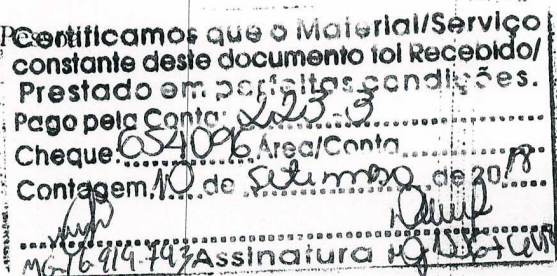 Certificamos que o Material/Serviço
constante deste documento foi Recebido/
Prestado em perfeitas condições.
Pago pela Conta: 223-3
Cheque: 654096 Área/Conta
Contagem, 10 de Setembro de 2018
MG-16 919-793 Assinatura